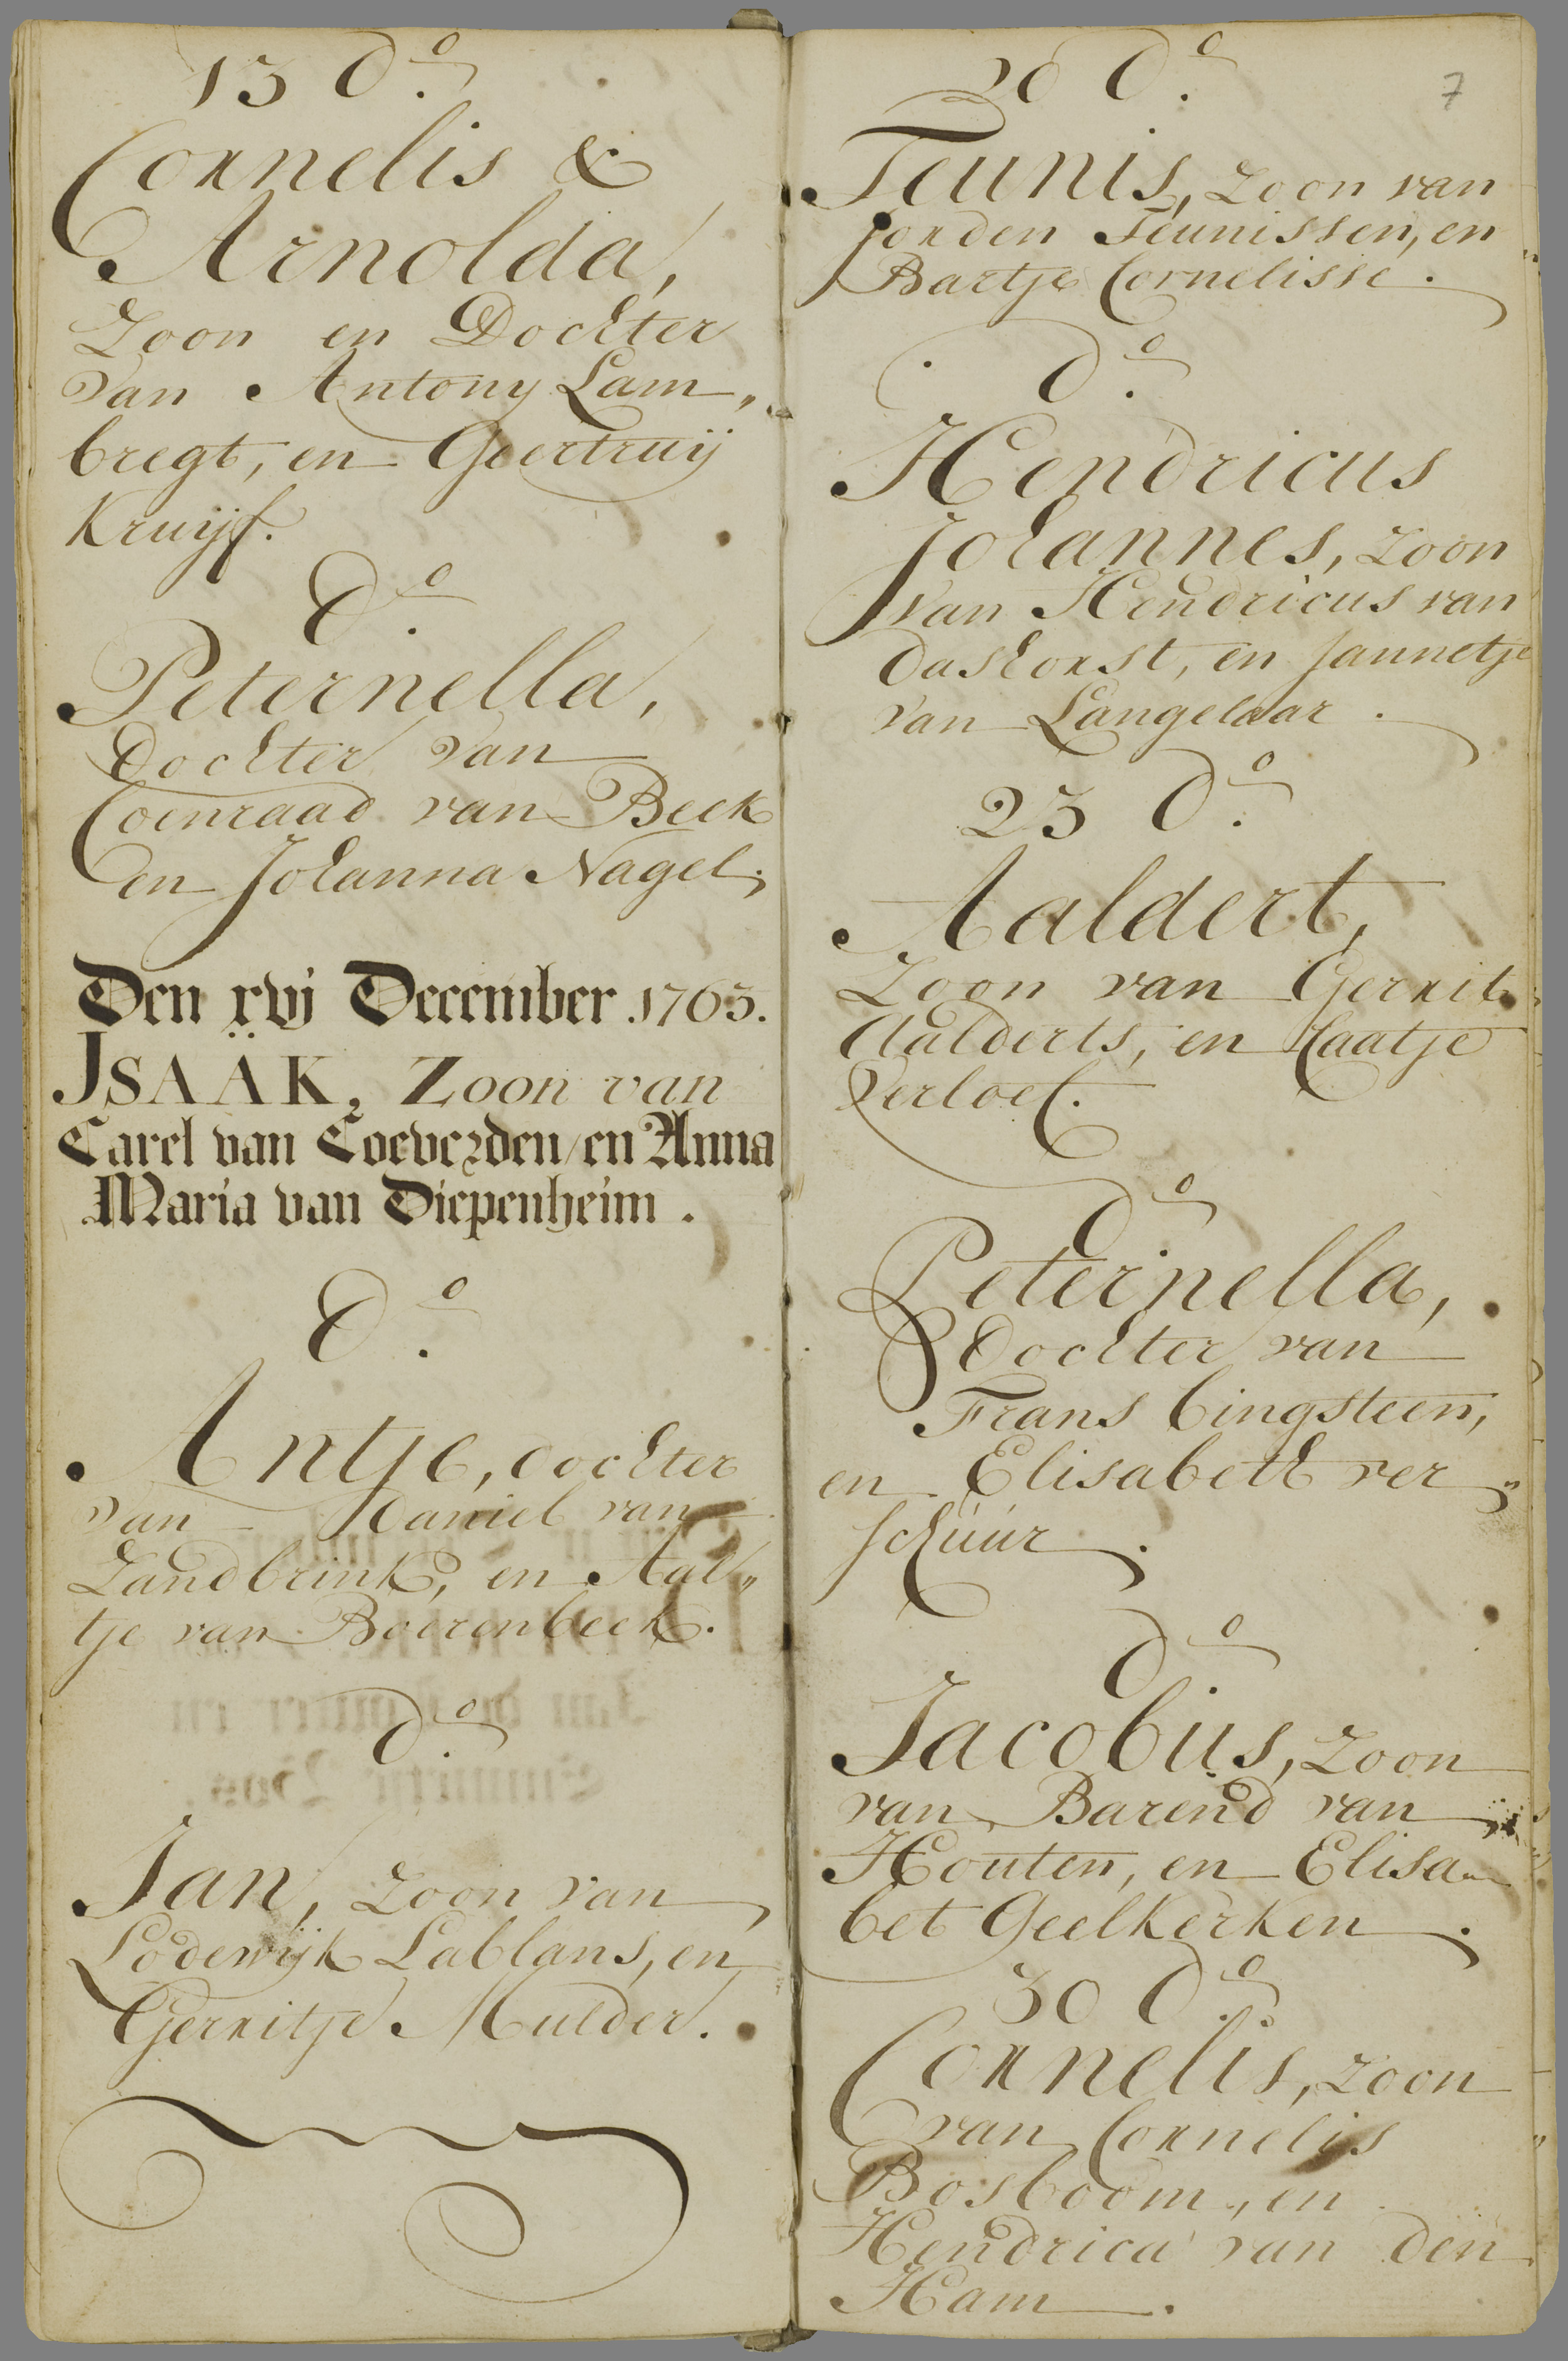 13 do.
Cornelis &
Arnolda,
Zoon en Dochter
van Antony Lam„
bregt, en Geertruij
Kruijf.
do.
Peternella,
Dochter van
Coenraad van Beek
en Johanna Nagel.
Den xvj December 1763.
JSAÄK, Zoon van
Carel van Coeverden / en Anna
Maria van Diepenheim.
do.
Antje, dochter
van Daniel van
Zandbrink, en Aal„
tje van Boerenbeek.
do.
Jan, Zoon van
Lodewijk Lablans, en
Gerritje Mulder.
7
20 do.
Teunis, Zoon van
Jorden Teunissen, en
Bartje Cornelisse.
do.
Hendricus
Johannes, Zoon
van Hendricus van
Dashorst, en Jannetje
van Langelaar.
23 do.
Aaldert,
Zoon van Gerrit
Aalderts, en Caatje
Verloef.
do.
Peternella,
Dochter van
Frans Bingsteen,
en Elisabeth ver„
schuur.
do.
Jacobus, Zoon
van Barend van
Houten, en Elisa„
bet Geelkerken.
30 do.
Cornelis, Zoon
van Cornelis
Bosboom, en
Hendrica van den
Ham.